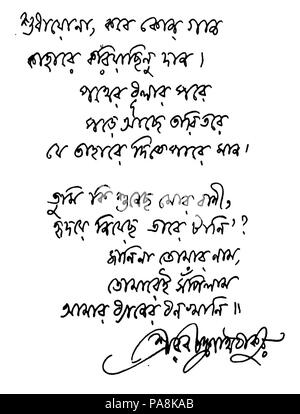 শুধায়োনা, কবে কোন গান
কাহারে করিয়াছিনু দান।
পথের ধূলার পরে
পড়ে আছে তারি তরে
যে তাহারে দিতে পারে মান।
তুমি কি শুনেছ মোর বাণী,
হৃদয়ে নিয়েছ তারে টানি'?
জানিনা তোমার নাম,
তোমারেই সঁপিলাম
আমার ধ্যানের ধনখানি॥
শ্রীরবীন্দ্রনাথ ঠাকুর
alamy
www.alamy.com - PA8KAB